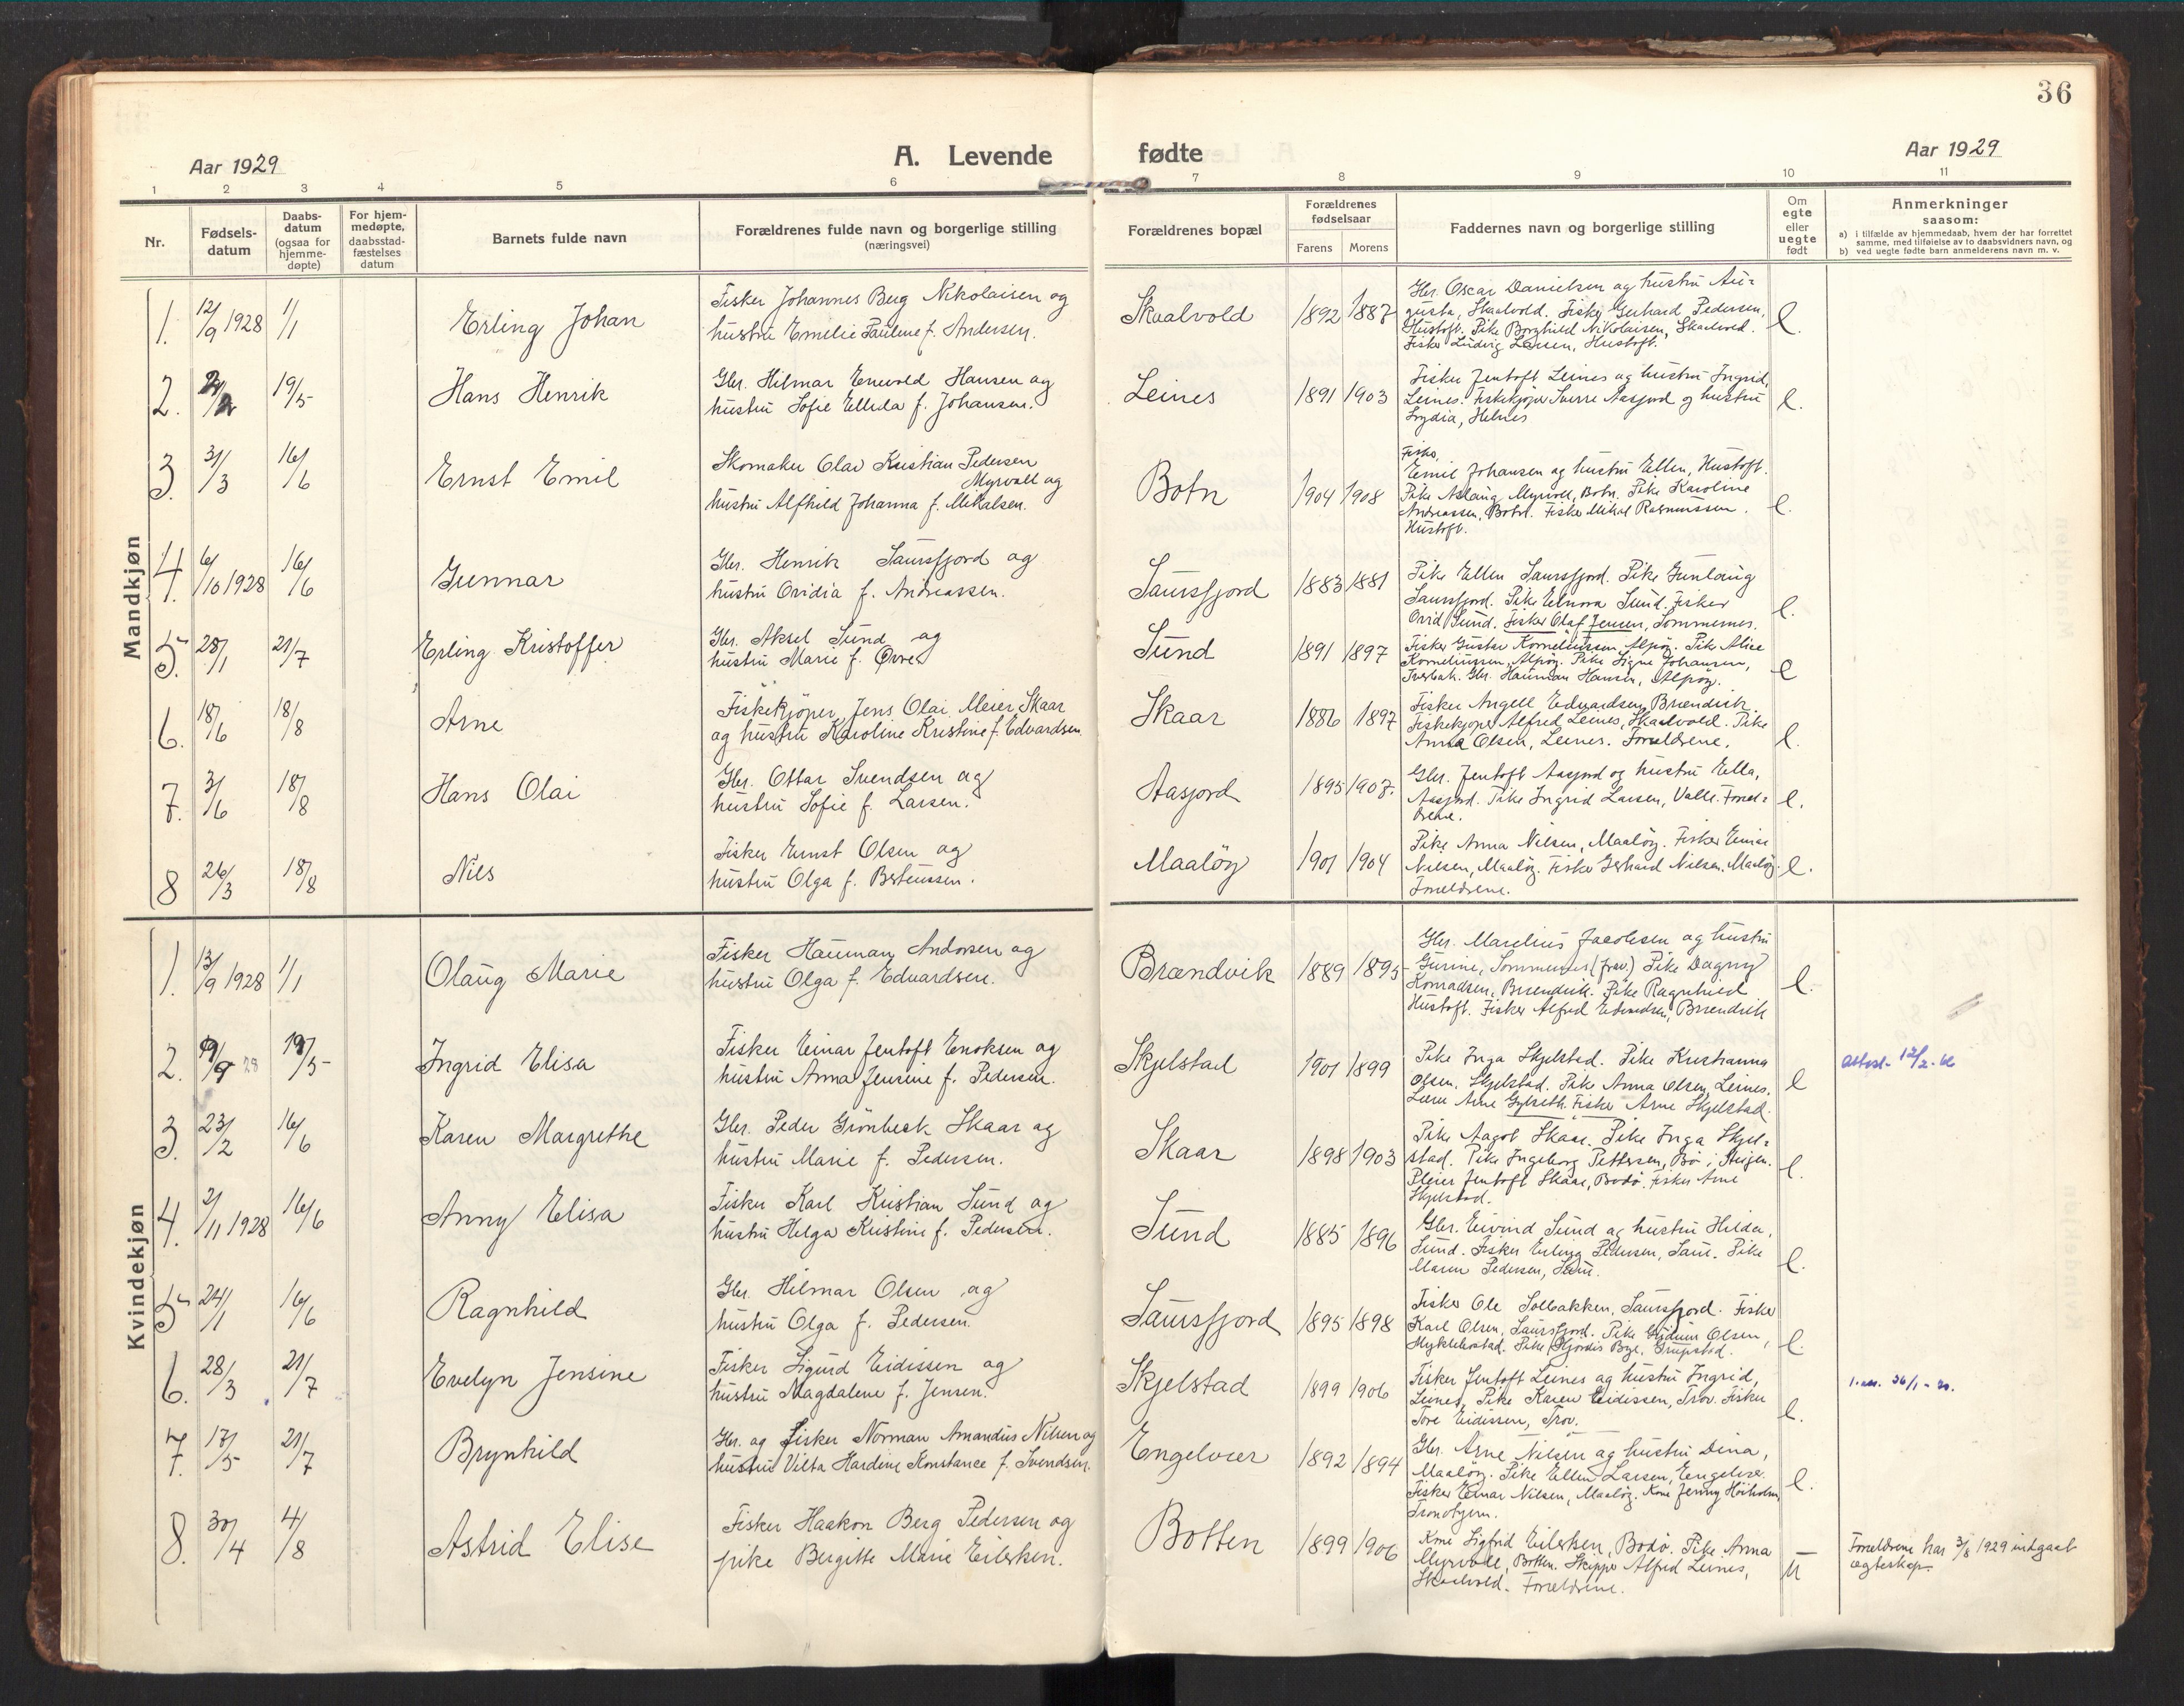 36
Aar 1929
A. Levende
fødte
Aar 1929
1 2 3 4 5 6 7 8 9 10 11
Nr.
Fødsels-
datum
Daabs-
datum
(ogsaa for
hjemme-
døpte)
For hjem-
medøpte,
daabsstad-
fæstelses
datum
Barnets fulde navn
Forældrenes fulde navn og borgerlige stilling
(næringsvei)
Forældrenes bopæl
Forældrenes
fødselsaar
Farens Morens
Faddernes navn og borgerlige stilling
Om
egte
eller
uegte
født
Anmerkninger
saasom:
a) i tilfælde av hjemmedaab, hvem der har forrettet
samme, med tilføielse av to daabsvidners navn, og
b) ved uegte fødte barn anmelderens navn m. v.
Mandkjøn
1. 12/9 1928 1/1 Erling Johan
Fisker Johannes Berg Nikolaisen og
hustru Emelie Pauline f. Andersen.
Skaalvold 1892 1887
Gbr. Oscar Danielsen og hustru Au-
gusta, Skaalvold. Fisker Gerhard Pedersen,
Hustoft. Pike Borghild Nikolaisen, Skaalvold.
Fisker Ludvig Larsen, Hustoft.
e.
2. 19/5 Hans Henrik
Gbr. Hilmar Enevold Hansen og
hustru Sofie Ellida f. Johansen.
Leines 1891 1903
Fisker Jentoft Leines og hustru Ingrid,
Leines. Fiskekjøper Sverre Aasjord og hustru
Lydia, Helnes
e.
3. 31/3 16/6 Ernst Emil
Skomaker Olav Kristian Pedersen
Myrvoll og
hustru Alfhild Johanna f. Mikalsen.
Botn 1904 1908
Fisker
Emil Johansen og hustru Ellen, Hustoft.
Pike Aslaug Myrvoll, Botn. Pike Karoline
Andreassen, Botn. Fisker Mikal Rasmussen.
Hustoft.
e.
4. 6/10 1928 16/6 Gunnar
Gbr. Henrik Saursfjord og
hustru Ovidia f. Andreassen.
Saursfjord 1883 1881
Pike Ellen Saursfjord. Pike Gunlaug
Saursfjord. Pike Elnora Sund. Fisker
Ovid Sund. Fisker Olaf Jensen, Sommernes.
e.
5. 28/1 21/7 Erling Kristoffer
Gbr. Aksel Sund og
hustru Marie f. Øvre
Sund 1891 1897
Fisker Gustav Korneliussen, Alpøy. Pike Alice
Korneliussen, Alpøy. Pike Signe Johansen,
Tverbak. Gbr. Hauman Hansen, Alpøy.
e
6. 18/6 18/8 Arne
Fiskekjøper Jens Olai Meier Skaar
og hustru Karoline Kristine f. Edvardsen.
Skaar 1886 1897
Fisker Angell Edvardsen, Brændvik.
Fiskekjøper Alfred Leines, Skaalvold. Pike
Anna Olsen, Leines. Forældrene.
e.
7. 3/6 18/8 Hans Olai
Gbr. Ottar Svendsen og
hustru Sofie f. Larsen.
Aasjord 1895 1907.
Gbr. Jentoft Aasjord og hustru Ella,
Aasjord. Pike Ingrid Larsen, Valle. Foræl-
drene.
e.
8 26/3 18/8 Nils
Fisker Ernst Olsen og
hustru Olga f. Berteussen.
Maaløy 1901 1904
Pike Anna Nilsen, Maaløy. Fisker Einar
Nilsen, Maaløy. Fisker Gerhard Nilsen, Maaløy.
Forældrene.
e.
Kvindekjøn
1. 13/9 1928 1/1 Olaug Marie
Fisker Hauman Andorsen og
hustru Olga f. Edvardsen.
Brændvik 1889 1895
Gbr. Marelius Jacobsen og hustru
Gurine, Sommernes (frav.) Pike Dagny
Konradsen, Brændvik. Pike Ragnhild
Hustoft. Fisker Alfred Edvardsen, Brændvik
e.
2. 28 19/5 Ingrid Elisa
Fisker Einar Jentoft Enoksen og
hustru Anna Jensine f. Pedersen.
Skjelstad 1901 1899
Pike Inga Skjelstad. Pike Kristianna
Olsen, Skjelstad. Pike Anna Olsen, Leines.
Lærer Arne Gylseth. Fisker Arne Skjelstad.
e
Attest 12/2
3. 23/2 16/6 Karen Margrethe
Gbr. Peder Grönbeck Skaar og
hustru Marie f. Pedersen.
Skaar 1898 1903
Pike Aagot Skaar. Pike Inga Skjel-
stad. Pike Ingeborg Pettersen, Bø i Steigen.
Pleier Jentoft Skaar, Bodø. Fisker Arne
Skjelstad.
e.
4. 2/11 1928 16/6 Anny Elisa
Fisker Karl Kristian Sund og
hustru Helga Kristine f. Pedersen.
Sund 1885 1896
Gbr. Eivind Sund og hustru Hilda,
Sund. Fisker Erling Pedersen, Saur. Pike
Maren Pedersen, Saur.
e.
5 24/1 16/6 Ragnhild
Gbr. Hilmar Olsen og
hustru Olga f. Pedersen.
Saursfjord 1895 1898
Fisker Ole Solbakken, Saursfjord. Fisker
Karl Olsen, Saursfjord. Pike Olsen,
Myklebostad. Pike Hjørdis Bye,
e.
6. 28/3 21/7 Evelyn Jensine
Fisker Sigurd Eidissen og
hustru Magdalene f. Jensen.
Skjelstad 1899 1906
Fisker Jentoft Leines og hustru Ingrid,
Leines, Pike Karen Eidissen, Trov. Fisker
Tore Eidissen, Trov.
e.
7. 17/5 21/7 Brynhild
Gbr. og fisker Norman Amandus Nilsen og
hustru Vilta Hardine Konstance f. Svendsen.
Engelvær 1892 1894
Gbr. Arne Nilsen og hustru Dina,
Maaløy. Pike Ellen Larsen, Engelvær.
Fisker Einar Nilsen, Maaløy. Kone Jenny Hoiholm,
e.
8. 30/4 4/8 Astrid Elise
Fisker Haakon Berg Pedersen og
pike Bergitte Marie Eilertsen.
Botten 1899 1906
Kone Sigfrid Eilertsen, Bodø. Pike Anna
Myrvoll, Botten. Skipper Alfred Leines,
Skaalvold. Forældrene.
u
Forældrene har 3/8 1929 indgaat
ægteskap.